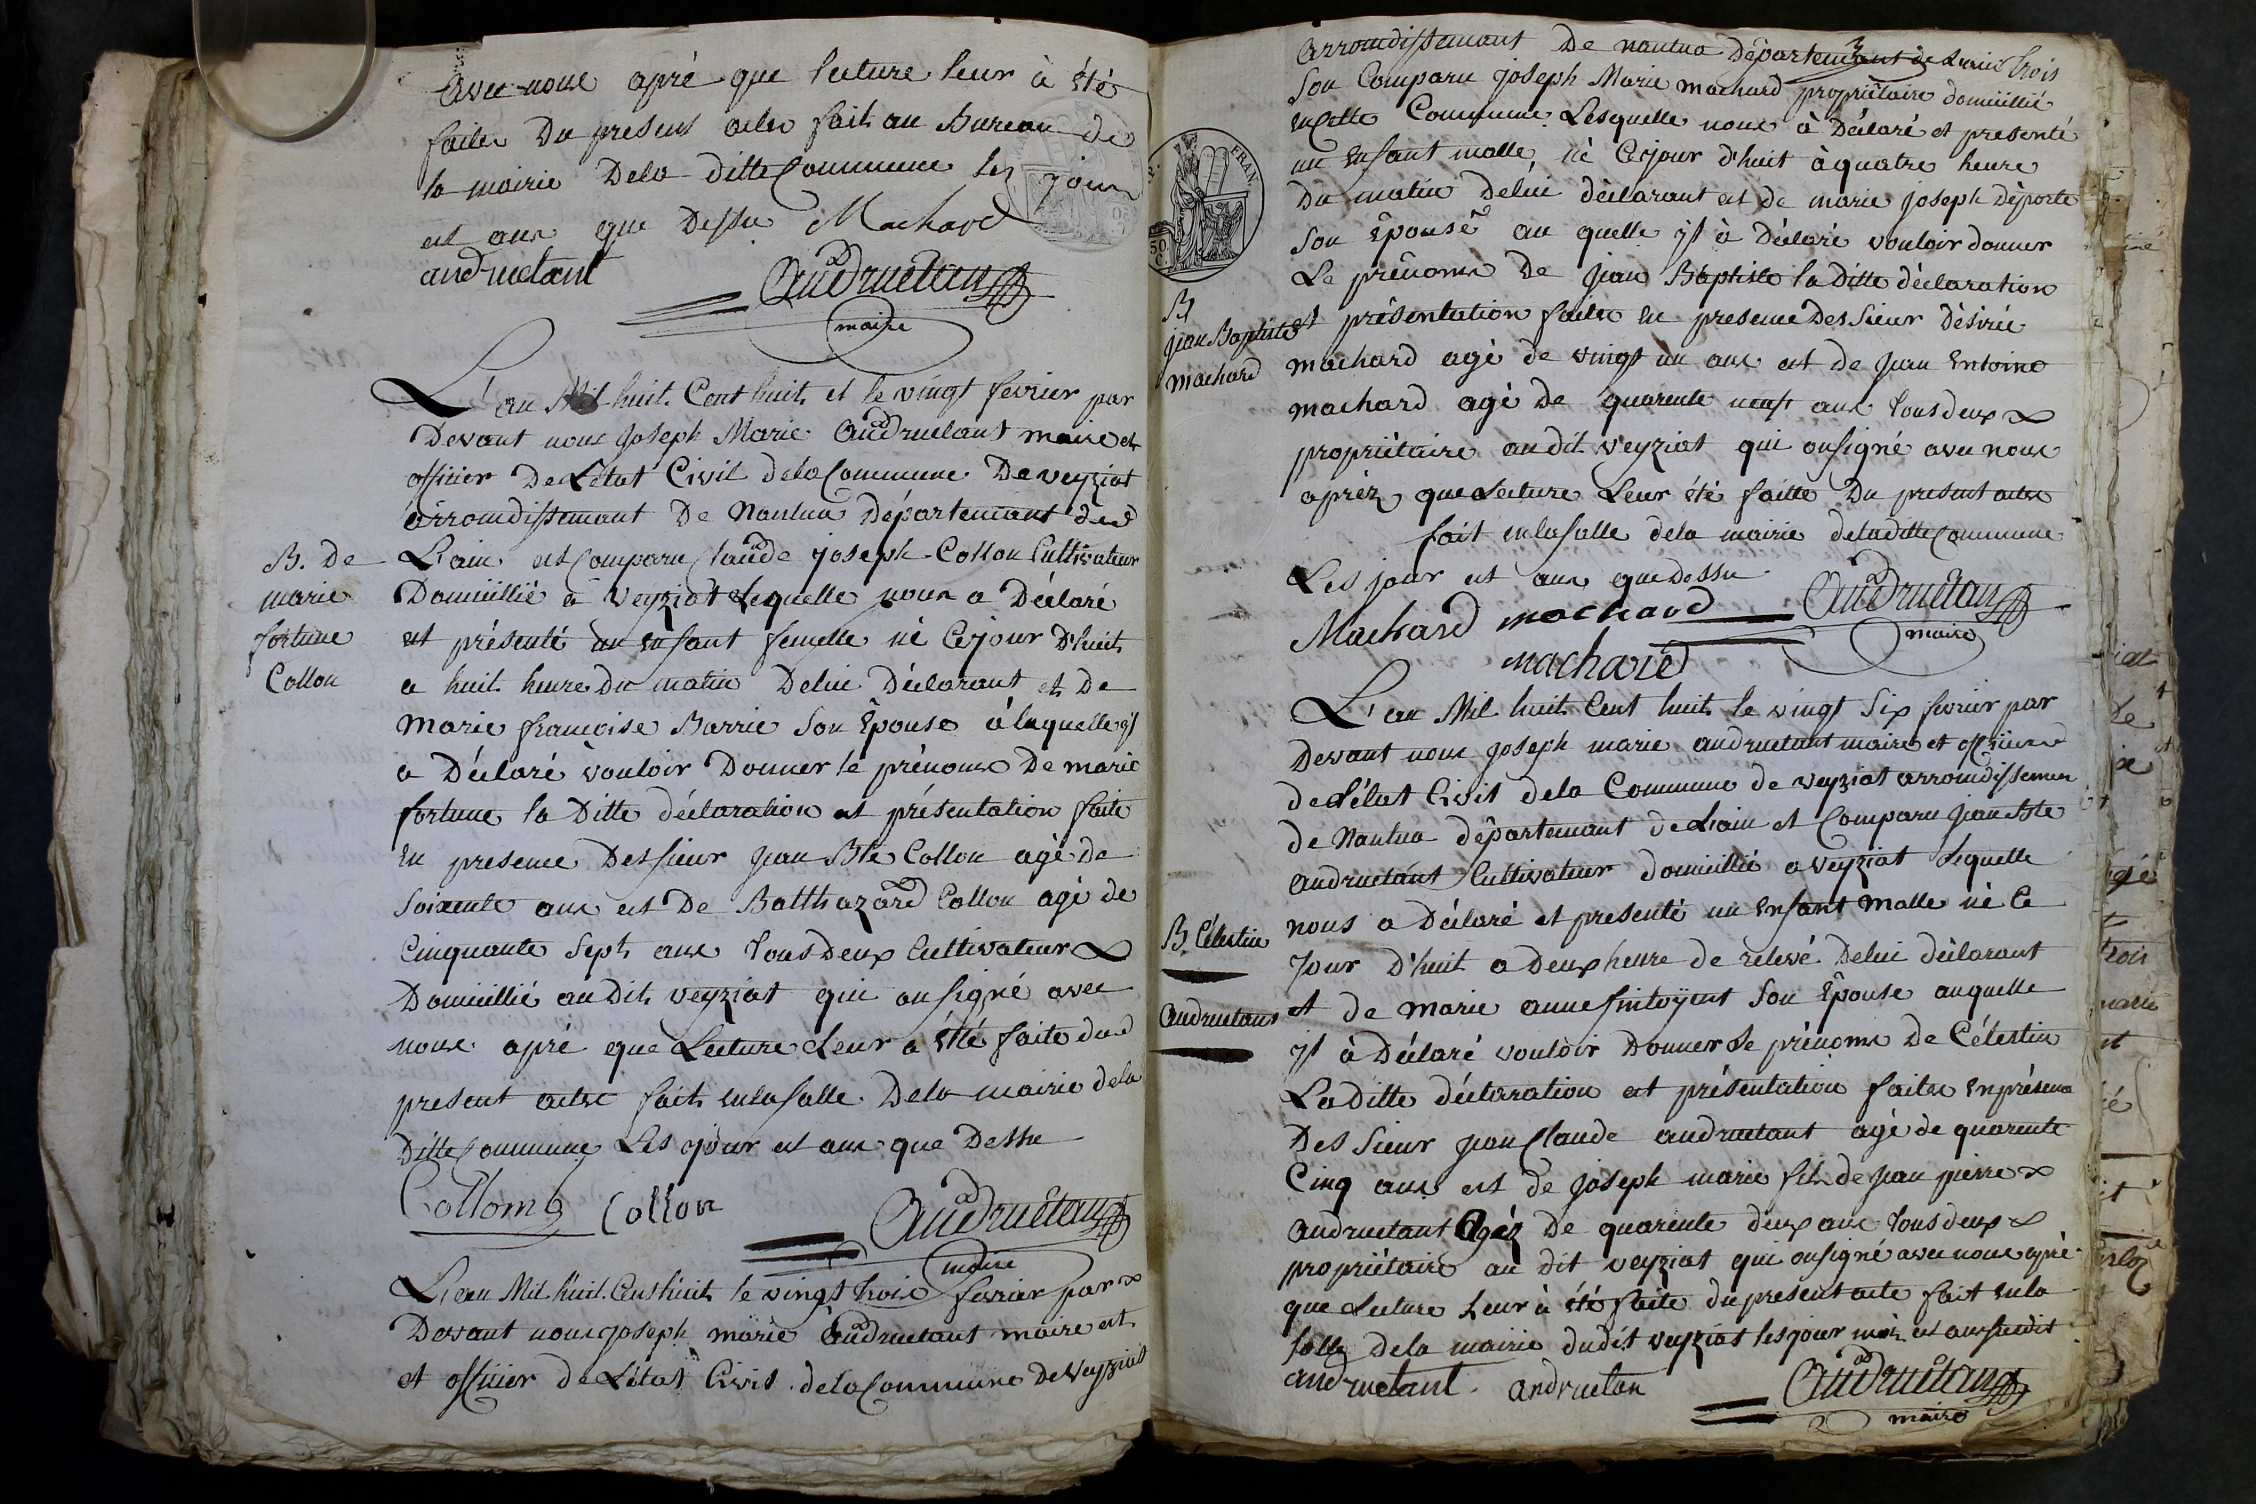 avec nous apré que lecture leur à été
faite Du present acte fait au Bureau de
la mairie Dela ditte Commune les jour
et ans que Dessu Machard
andruetant Audruetan
maire
L'an Mil huit Cent huit et le vingt fevrier par
Devant nous joseph Marie Audruetant maire et
officier De L'état Civil dela Commune De veyziat
arroindissemant De Nantua Départemant de
B. de
marie
fortune
Collon
L'ain est Comparu Claude joseph Collon Cultivateur
Domiiillié à veyziat Lequelle nous a Déclaré
et présenté un enfant femelle né Cejour D'huit
a huit heure Du matin Delui Déclarant et De
Marie françoise Barrie son Epouse à laquelle yl
a Déclaré vouloir Donner le prénoms De marie
fortune la Ditte déclaration et présentation faite
en presence Des sieur jean Bte Collon agé de
soixente ans et De Balthazard Collon agé de
Cinquante sept ans Tous Deux Cultivateur
Domiiillié audit veyziat qui on signé avec
nous apré que Lecture Leur a été faite du
present acte fait enla salle Dela mairie dela
Ditte Commune Les jour et ans que Dessu
Collomb Collon Audruetan
maire
L'an Mil huit Cent huit le vingt trois fevrier par
Devant nous joseph marie Audruetant maire et
et officier de L'état Civil dela Commune De Veyziat
arroindissemant De nantua Départemant de Lain Trois
Son Comparu joseph Marie machard propriétaire domiiillié
encette Commune Lesquelle nous à Déclaré et presenté
un enfant malle né Cejour d'huit à quatre heure
Du matin delui déclarant et de marie joseph Déporte
son Epouse au quelle yl à Déclaré vouloir donner
Le prénoms De jean Baptiste la Ditte déclaration
B
jean Baptiste
machard
et présentation faite en presence Des Sieur Désirée
machard agé de vingt un ans et de jean Entoine
machard agé De quarente neuf ans Tous deux
propriétaire audit veyziat qui onsigné avec nous
aprèz que Lecture Leur été faitte Du present acte
fait enla salle dela mairie deladitte Commune
Les jour et ans que Dessu Audruetan
Machard machard
maire
machard
L'an Mil huit Cent huit le vingt Six fevrier par
Devant nous joseph marie andruetant maire et officier
de l'état Civil dela Commune de veyziat arroindissemen
de Nantua départemant de Lain et Comparu jean Bte
andruetant Cultivateur domiiillié a veyziat Lequelle
B. Célestin
Andruetans
nous a Déclaré et presenté un enfant malle né Ce
Jour d'huit a Deux heure de relevé Delui déclarant
et de marie anne son Epouse auquelle
yl à Déclaré vouloir Donner Le prénoms De Célestin
La Ditte déclaration et présentation faite en présence
Des sieur jean Claude andruetant agé de quarente
Cinq ans et de joseph marie fils de jean pierre
andruetant agéz De quarente deux ans Tous deux
propriétaire au dit veyziat qui onsigné avec nous apré
que Lecture Leur à été faite du present acte fait enla
salle dela mairie dudit veyziat les jour mois et an susdit
andruetant andruetan Audruetan
maire